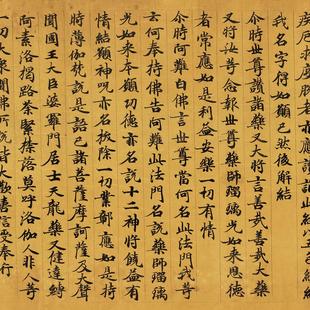 疾厄求度脫者亦應讀誦此經以五色縷結
我名字得如願已然後解結
尒時世尊讚諸藥叉大將言善哉善哉大藥
叉將汝等念報世尊藥師瑠璃光如來恩德
者常應如是利益安樂一切有情
尒時阿難白佛言世尊當何名此法門我等
云何奉持佛告阿難此法門名說藥師瑠璃
光如來本願功德亦名說十二神將饒益有
情結願神呪亦名拔除一切業鄣應如是持
時薄伽梵說是語已諸菩薩摩訶薩及大聲
聞國王大臣婆羅門居士天龍藥叉健達縛
阿素洛揭路荼緊捺洛莫呼洛伽人非人等
一切大衆聞佛所說皆大歡喜信受奉行